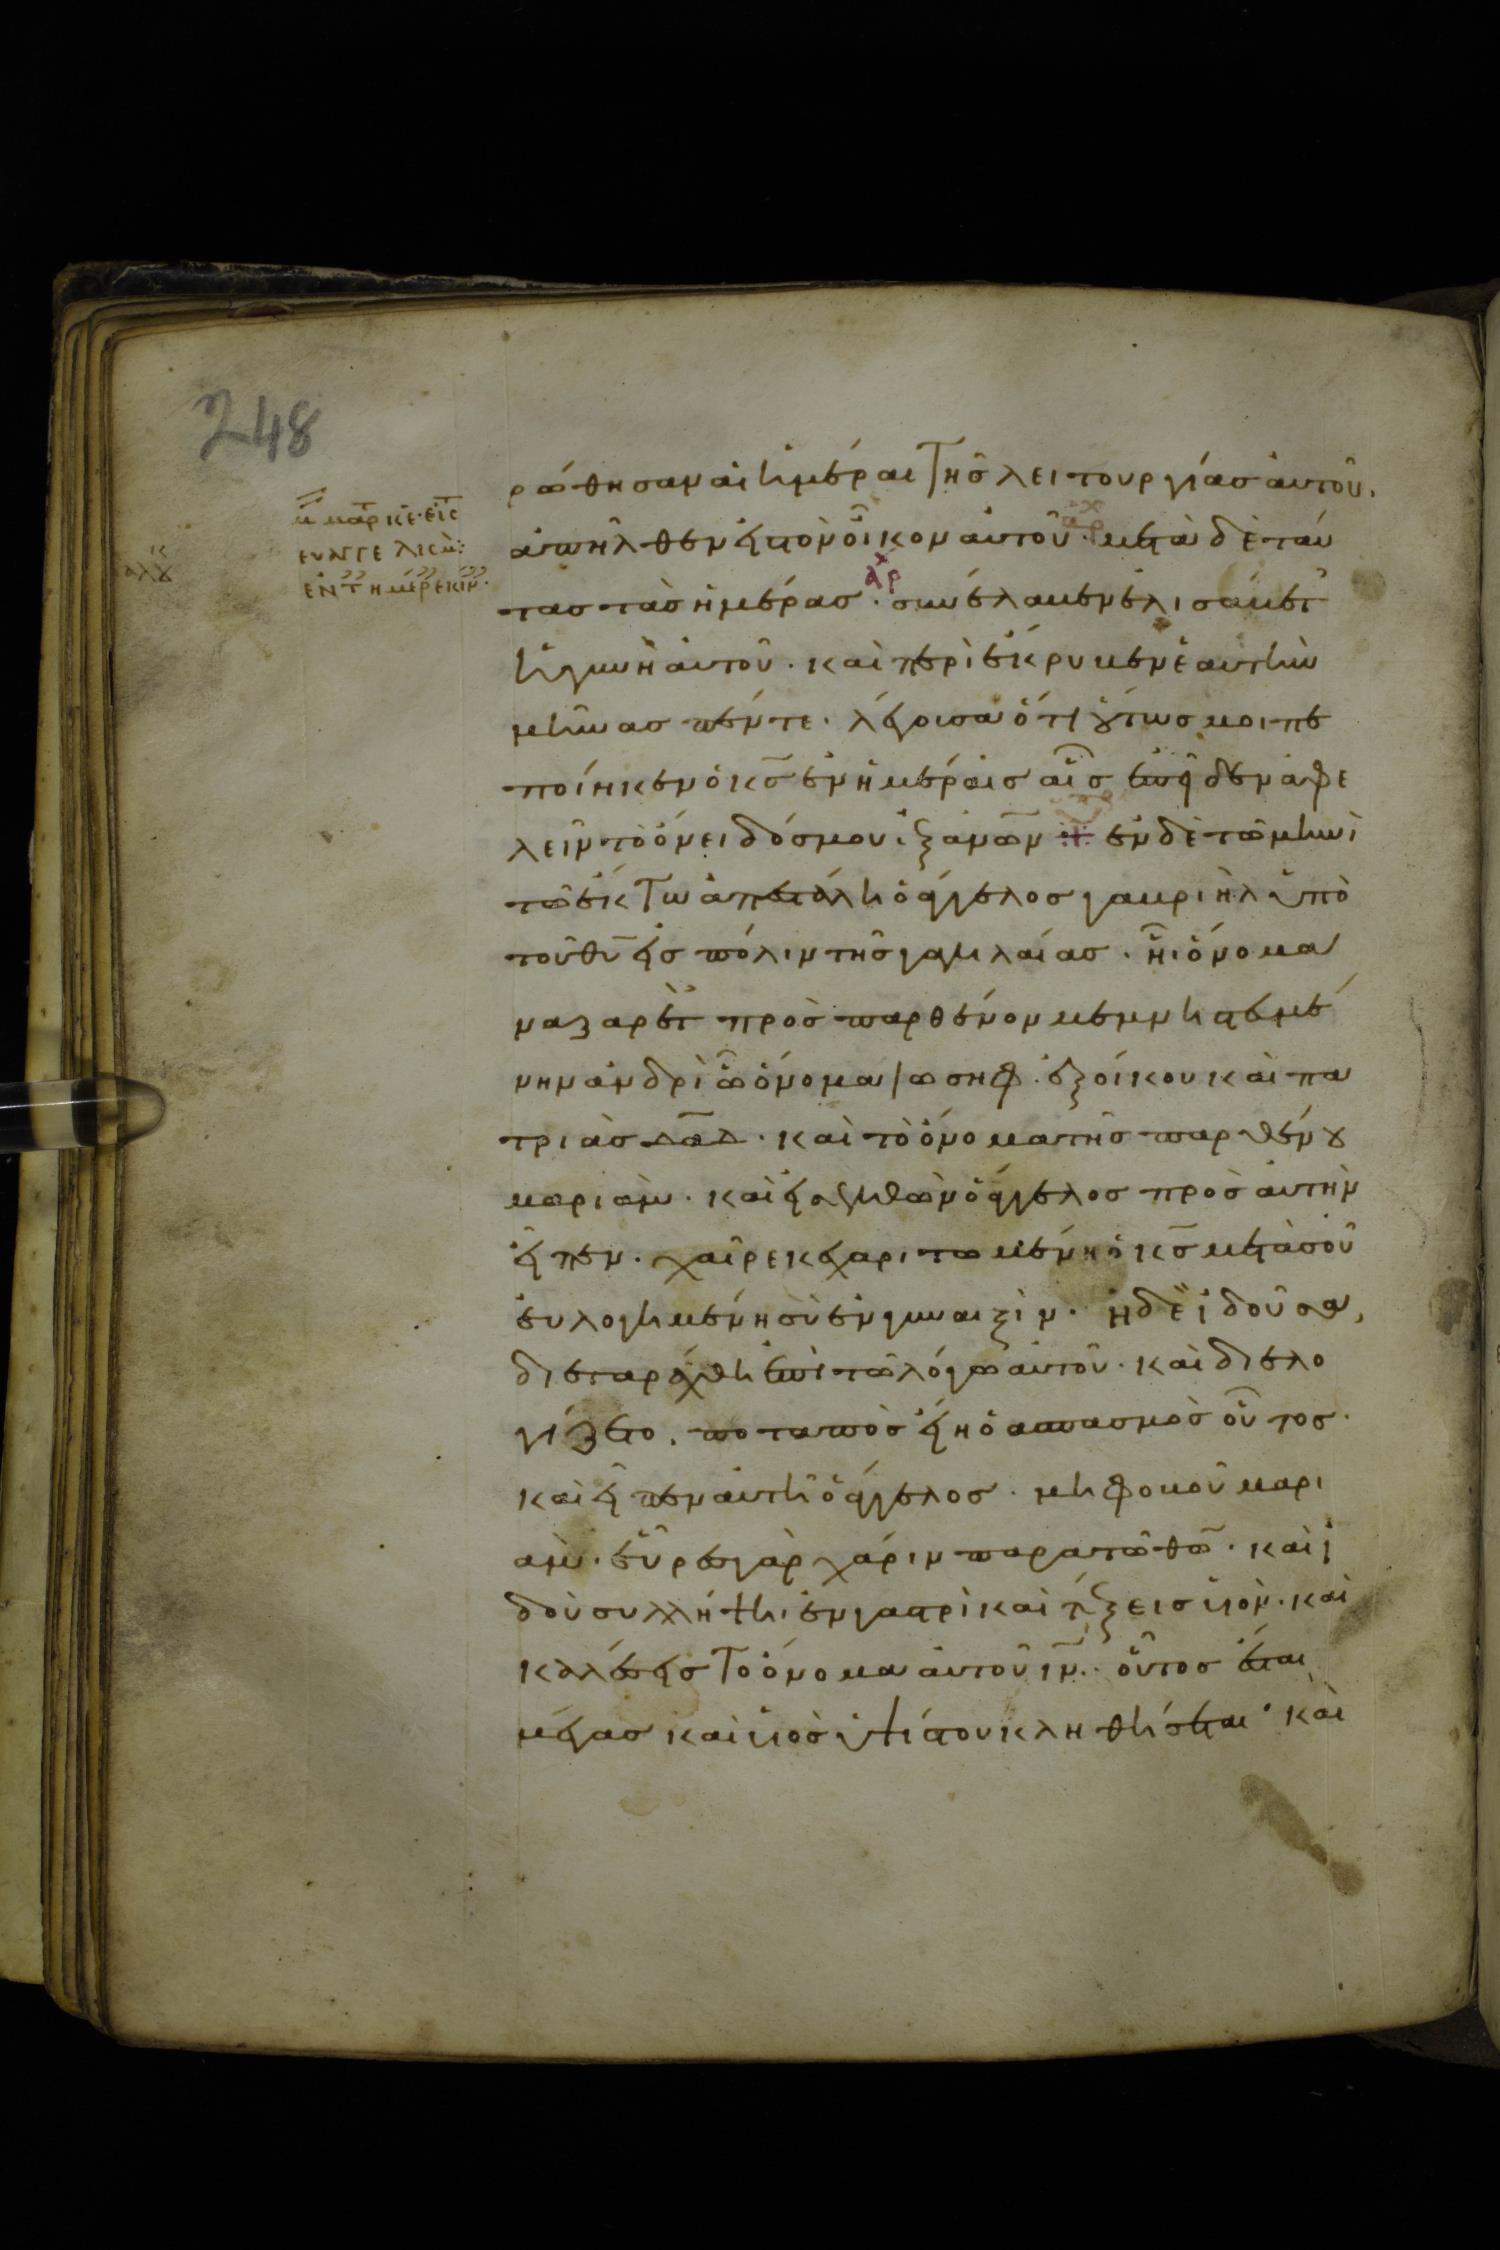 248
μ μαρ κε· εἰς
ευαγγελισμ:
ρώθησαν αἱ ἡμέραι τῆς λειτουργίας αὐτοῦ.
ἀπῆλθεν εἰς τὸν οἶκον αὐτοῦ· μετὰ δὲ ταύ
αρχ
τας τὰς ἡμέρας· συνέλαβεν ἐλισάβετ
ἡ γυνὴ αὐτοῦ· καὶ περιέκρυβεν ἑαυτὴν
μῆνας πέντε· λέγουσα ὅτι οὕτως μοι πε
ποίηκεν ὁ κς ἐν ἡμέραις αἷς ἐπεῖδεν ἀφε
λεῖν τὸ ὄνειδός μου ἐξ ἀνων ⁘ ἐν δὲ τῶ μηνὶ
τῶ ἕκτω ἀπεστάλη ὁ ἄγγελος γαβριὴλ ὑπὸ
τοῦ θυ εἰς πόλιν τῆς γαλιλαίας· ἧ ὄνομα
ναζαρὲτ πρὸς παρθένον μεμνηστευμέ
νην ἀνδρὶ ὧ ὄνομα ἰωσήφ· ἐξ οἴκου καὶ πα
τριᾶς δαδ· καὶ τὸ ὄνομα τῆς παρθένου
μαριάμ· καὶ εἰσελθὼν ὁ ἄγγελος πρὸς αὐτὴν
εἶπεν· χαῖρε κεχαριτωμένη ὁ κς μετὰ σοῦ
εὐλογημένη σὺ ἐν γυναιξίν· ἡ δὲ ἰδοῦσα,
διεταράχθη ἐπὶ τῶ λόγω αὐτοῦ· καὶ διελο
γίζετο· ποταπὸς εἴη ὁ ἀσπασμὸς οὗτος·
καὶ εἶπεν αὐτῆ ὁ ἄγγελος· μὴ φοβοῦ μαρι
άμ· εὗρες γὰρ χάριν παρὰ τῶ θω· καὶ ἰ
δοὺ συλλήψη ἐν γαστρὶ καὶ τέξεις υἱόν· καὶ
καλέσεις τὸ ὄνομα αὐτοῦ ιν· οὗτος ἔσται
μέγας καὶ υἱὸς ὑψίστου κληθήσεται· καὶ